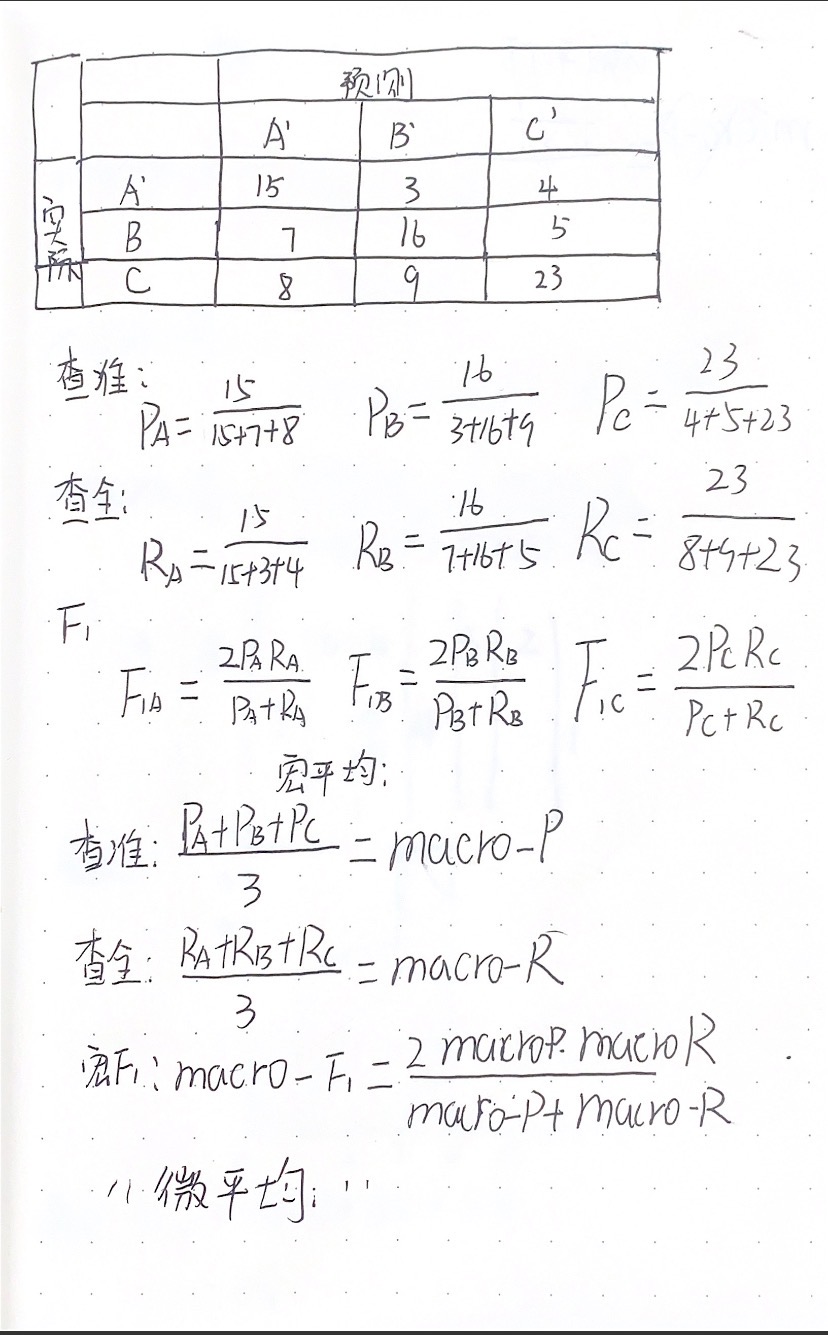 预测
A' B' C'
实际
A' 15 3 4
B 7 16 5
C 8 9 23
查准:
P_A = 15/(15+7+8) P_B = 16/(3+16+9) P_C = 23/(4+5+23)
查全:
R_A = 15/(15+3+4) R_B = 16/(7+16+5) R_C = 23/(8+9+23)
F₁
F_1A = 2P_A R_A/(P_A+R_A) F_1B = 2P_B R_B/(P_B+R_B) F_1C = 2P_C R_C/(P_C+R_C)
宏平均:
查准: (P_A+P_B+P_C)/3 = macro-P
查全: (R_A+R_B+R_C)/3 = macro-R
宏F₁: macro-F₁ = 2 macroP·macroR/(macro-P+macro-R)
"微平均:"